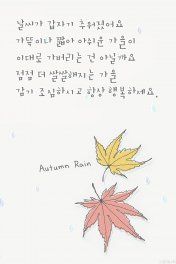 날씨가 갑자기 추워졌어요
가뜩이나 짧아 아쉬운 가을이
이대로 가버리는 건 아닐까요
점점 더 쌀쌀해지는 가을
감기 조심하시고 항상 행복하세요.
Autumn Rain